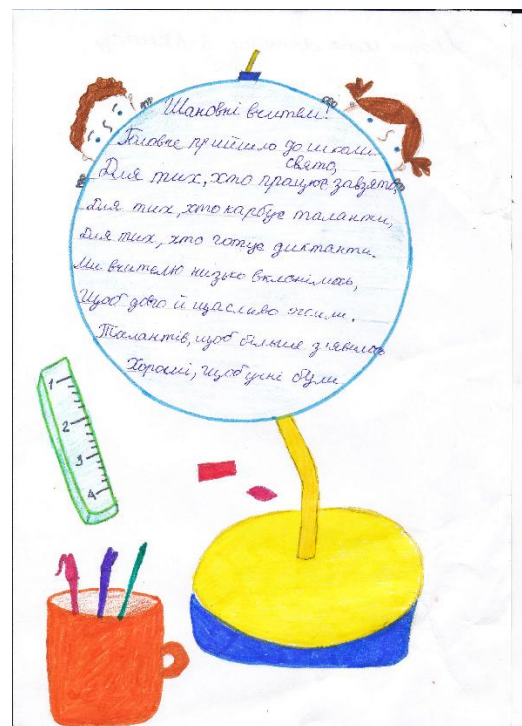 Шановні вчителі!
Головне прийшло до школи
свято,
Для тих, хто працює завзято,
Для тих, хто карбує таланти,
Для тих, хто готує диктанти.
Ми вчителю низько вклонімось,
Щоб довго й щасливо жили.
Талантів, щоб більше з'явилось
Хороші, щоб учні були
1
2
3
4